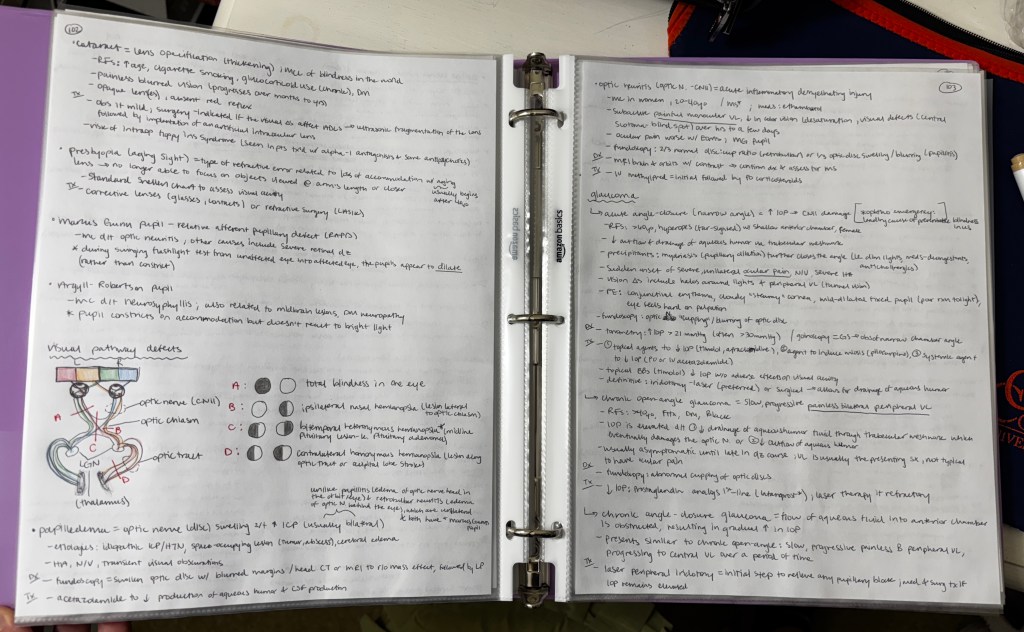 102
• Cataract = lens opacification (thickening); mcc of blindness in the world
- RFs: ↑ age, cigarette smoking, glucocorticoid use (chronic), DM
- painless blurred vision (progresses over months to yrs)
- opaque lens(es), absent red reflex
Tx - obs if mild; surgery indicated if the visual Δs affect ADLs → ultrasonic fragmentation of the lens
followed by implantation of an artificial intraocular lens
- risk of intraop floppy iris syndrome (seen in pts tx'd w/ alpha-1 antagonists & some antipsychotics)
• Presbyopia (aging sight) = type of refractive error related to loss of accommodation w/ aging
lens → no longer able to focus on objects viewed @ arm's length or closer
usually begins
after
- Standard Snellen Chart to assess visual acuity
Tx - corrective lenses (glasses, contacts) or refractive surgery (LASIK)
• Marcus Gunn Pupil - relative afferent pupillary defect (RAPD)
- mc d/t optic neuritis, other causes include severe retinal dz
* during swinging flashlight test from unaffected eye into affected eye, the pupils appear to dilate
(rather than constrict)
• Argyll-Robertson Pupil
- mc d/t neurosyphyllis; also related to midbrain lesions, DM neuropathy
* pupil constricts on accommodation but doesn't react to bright light
Visual pathway defects
L R
optic nerve (CNII)
optic chiasm
optic tract
A
B
C
D
LGN
(thalamus)
A: total blindness in one eye
B: ipsilateral nasal hemianopia (lesion lateral
to optic chiasm)
C: bitemporal heteronymous hemianopia* (midline
pituitary lesion ie pituitary adenoma)
D: contralateral homonymous hemianopia (lesion along
optic tract or occipital lobe stroke)
unlike papillitis (edema of optic nerve head in
the orbit/eye) & retrobulbar neuritis (edema
of optic N behind the eye), which are unilateral
* both have + marcus gunn
pupil
• papilledema = optic nerve (disc) swelling 2/t ↑ ICP (usually bilateral)
- etiologies: idiopathic ICP/HTN, space-occupying lesion (tumor, abscess), cerebral edema
- HA, N/V, transient visual obscurations
Dx - fundoscopy = swollen optic disc w/ blurred margins / head CT or MRI to r/o mass effect, followed by LP
Tx - acetazolamide to ↓ production of aqueous humor & CSF production
amazon basics
amazon basics
103
• optic neuritis (optic N. - CNII) = acute inflammatory demyelinating injury
- mc in women, 20-40yo / MS*, meds: ethambutol
- subacute painful monocular VL, ↓ in color vision (desaturation), visual defects (central
scotoma - blind spot) over hrs to a few days
- ocular pain worse w/ EOMs; MG pupil
- fundoscopy: 2/3 normal disc:cup ratio (retrobulbar) or 1/3 optic disc swelling/blurring (papillitis)
Dx - MRI brain & orbits w/ contrast → confirm dx & assess for MS
Tx - IV methylpred = initial followed by PO corticosteroids
glaucoma
↳ acute angle-closure (narrow angle) = ↑ IOP → CNII damage
[ophthalmic emergency:
leading cause of preventable blindness
in US]
- RFs: >60yo, hyperopes (far-sighted) w/ shallow anterior chamber, female
- ↓ outflow & drainage of aqueous humor via trabecular meshwork
- precipitants: mydriasis (pupillary dilation) further closes the angle (i.e. dim lights, meds - decongestants,
anticholinergics)
- Sudden onset of severe, unilateral ocular pain, N/V severe HA
- vision Δs include halos around lights & peripheral VL (tunnel vision)
- PE: conjunctival erythema, cloudy "steamy" cornea, mid-dilated fixed pupil (poor rxn to light),
eye feels hard on palpation
- fundoscopy: optic "cupping"/blurring of optic disc
Dx - tonometry: ↑ IOP >21 mmHg (often >30mmHg) / gonioscopy = GS → abnt narrow chamber angle
Tx - ① topical agents to ↓ IOP (timolol, apraclonidine), ② agent to induce miosis (pilocarpine), ③ systemic agent
to ↓ IOP (PO or IV acetazolamide)
- topical BBs (timolol) ↓ IOP w/o adverse effect on visual acuity
- definitive: iridotomy - laser (preferred) or surgical → allows for drainage of aqueous humor
↳ chronic open-angle glaucoma = slow, progressive painless bilateral peripheral VL
- RFs: >40yo, FHx, DM, Blacks
- IOP is elevated d/t ① ↓ drainage of aqueous humor fluid through trabecular meshwork which
eventually damages the optic N. or ② ↓ outflow of aqueous humor
- usually asymptomatic until late in dz course; VL is usually the presenting sx, not typical
to have ocular pain
Dx - fundoscopy: abnormal cupping of optic discs
Tx - ↓ IOP: prostaglandin analogs 1st-line (latanoprost*), laser therapy if refractory
↳ chronic angle-closure glaucoma = flow of aqueous fluid into anterior chamber
is obstructed, resulting in gradual ↑ in IOP
- Presents similar to chronic open-angle: slow, progressive painless B peripheral VL,
progressing to central VL over a period of time
Tx - laser peripheral iridotomy = initial step to relieve any pupillary block; med & surg tx if
IOP remains elevated